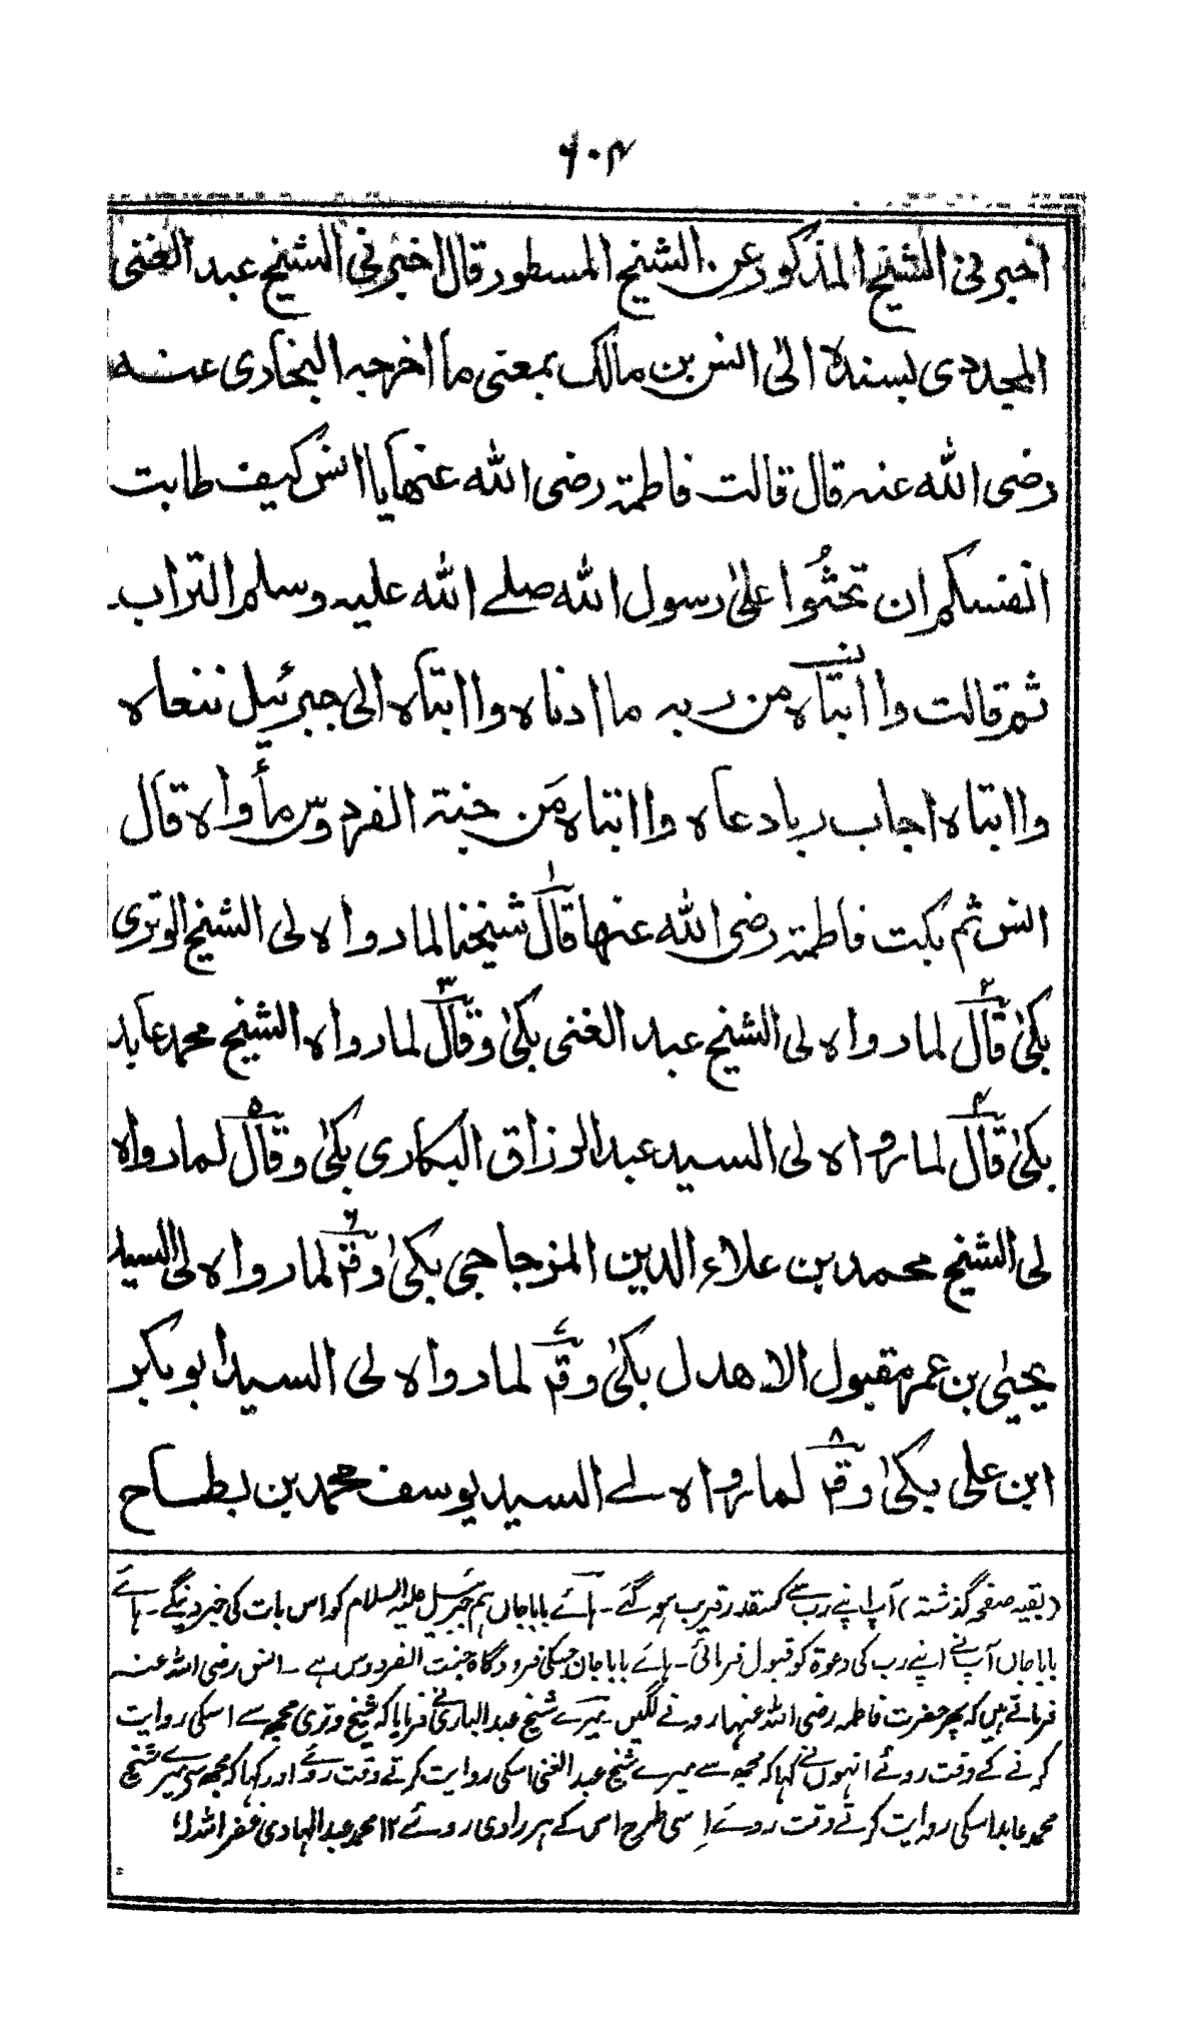 ۶۰۴
اخبرنی الشیخ المذکور عن الشیخ المسطور قال اخبرنی الشیخ عبد الغنی
المجددی بسندہ الیٰ انس بن مالک بمعنی ما اخرجہ البخاری عنہ
رضی اللہ عنہ قال قالت فاطمۃ رضی اللہ عنھا یا انس کیف طابت
انفسکم ان تحثُوا علیٰ رسول اللہ صلے اللہ علیہ وسلم التراب
ثم قالت وا ابتاہ من ربہ ما ادناہ وا ابتاہ الی جبرئیل ننعاہ
وا ابتاہ اجاب ربا دعاہ وا ابتاہ مَن جنۃ الفردوس مأواہ قال
انس ثم بکت فاطمۃ رضی اللہ عنھا قال۱ شیخنا لما رواہ لی الشیخ الوتری
بکیٰ قال۲ لما رواہ لی الشیخ عبد الغنی بکیٰ وقال۳ لما رواہ الشیخ محمد عابد
بکیٰ قال۴ لما رواہ لی السید عبد الرزاق البکاری بکیٰ وقال۵ لما رواہ
لی الشیخ محمد بن علاء الدین المزجاجی بکیٰ وقر۶ لما رواہ لی السید
یحییٰ بن عمر مقبول الاھدل بکیٰ وقر۷ لما رواہ لی السید ابو بکر
ابن علی بکیٰ وقر۸ لما رواہ لے السید یوسف محمد بن بطاح
(بقیہ صفحہ گذشتہ) آپ اپنے رب سے کسقدر قریب ہو گئے۔ ہائے باباجاں ہم جبرئیل علیہ السلام کو اس بات کی خبر دینگے۔ ہائے
باباجاں آپ نے اپنے رب کی دعوۃ کو قبول فرمائی۔ ہائے باباجان جسکی فرودگاہ جنت الفردوس ہے۔ انس رضی اللہ عنہ
فرماتے ہیں کہ پھر حضرت فاطمہ رضی اللہ عنہا رونے لگیں۔ میرے شیخ عبد الباری نے فرمایا کہ شیخ وتری مجھ سے اسکی روایت
کرنے کے وقت روئے انہوں نے کہا کہ مجھ سے میرے شیخ عبد الغنی اسکی روایت کرتے وقت روئے اور کہا کہ مجھ سے میرے شیخ
محمد عابد اسکی روایت کرتے وقت روئے اِسی طرح اس کے ہر راوی روئے ۱۲ محمد عبد الہادی غفر اللہ لہ